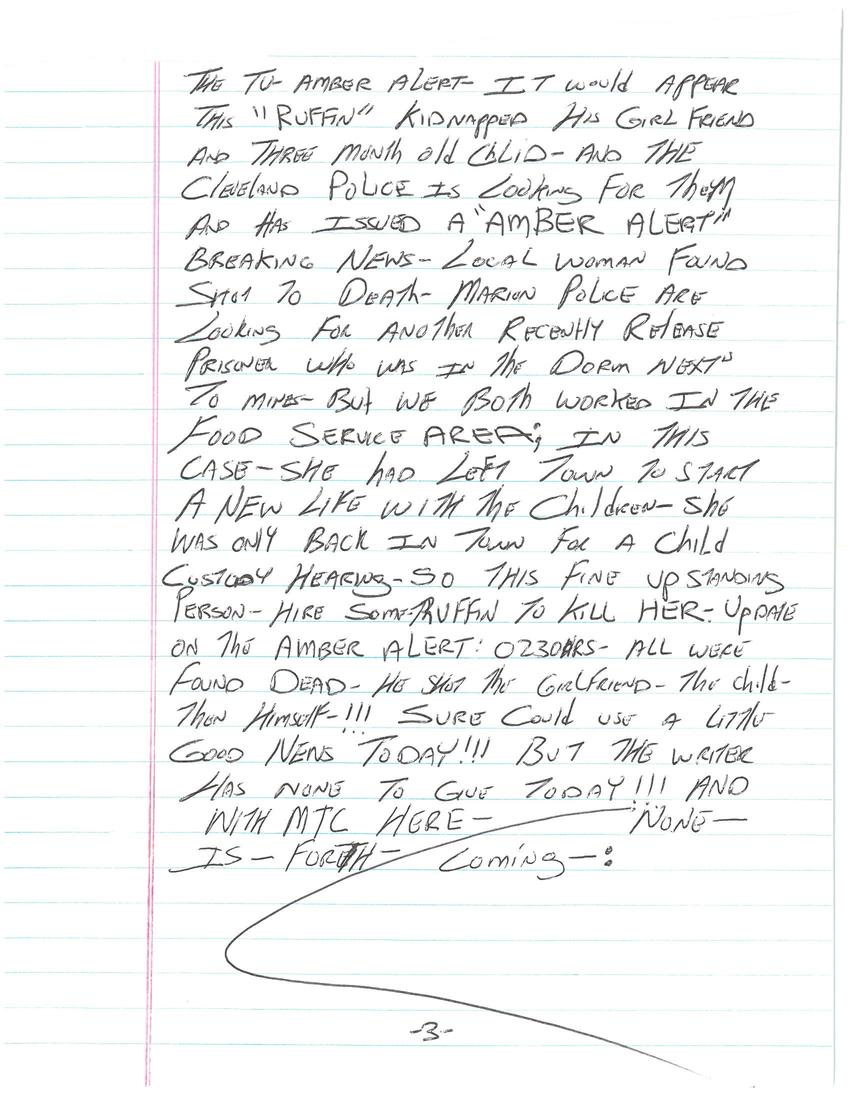 THE TV- AMBER ALERT- IT WOULD APPEAR
THIS "RUFFIN" KIDNAPPED HIS GIRL FRIEND
AND THREE MONTH Old ChLID- AND THE
CLEVELAND POLICE IS LOOKING FOR THEM
AND HAS ISSUED A "AMBER ALERT"
BREAKING NEWS- LOCAL WOMAN FOUND
SHOT TO DEATH- MARION POLICE ARE
LOOKING FOR ANOTHER RECENTLY RELEASE
PRISONER WHO WAS IN THE DORM NEXT"
TO MINES- BUT WE BOTH WORKED IN THE
FOOD SERVICE AREA; IN THIS
CASE- SHE HAD LEFT TOWN TO START
A NEW LIFE WITH THE Children- SHE
WAS ONLY BACK IN TOWN FOR A Child
CUSTODY HEARING- SO THIS FINE UPSTANDING
PERSON- HIRE SOME-RUFFIN TO KILL HER- UPDATE
ON THE AMBER ALERT: 0230HRS- ALL WERE
FOUND DEAD- HE SHOT THE GIRLFRIEND- THE child-
THEN HIMSELF-!!! SURE COULD USE A LITTLE
GOOD NEWS TODAY!!! BUT THE WRITER
HAS NONE TO GIVE TODAY!!! AND
WITH MTC HERE- NONE-
IS- FORTH- Coming-:
-3-